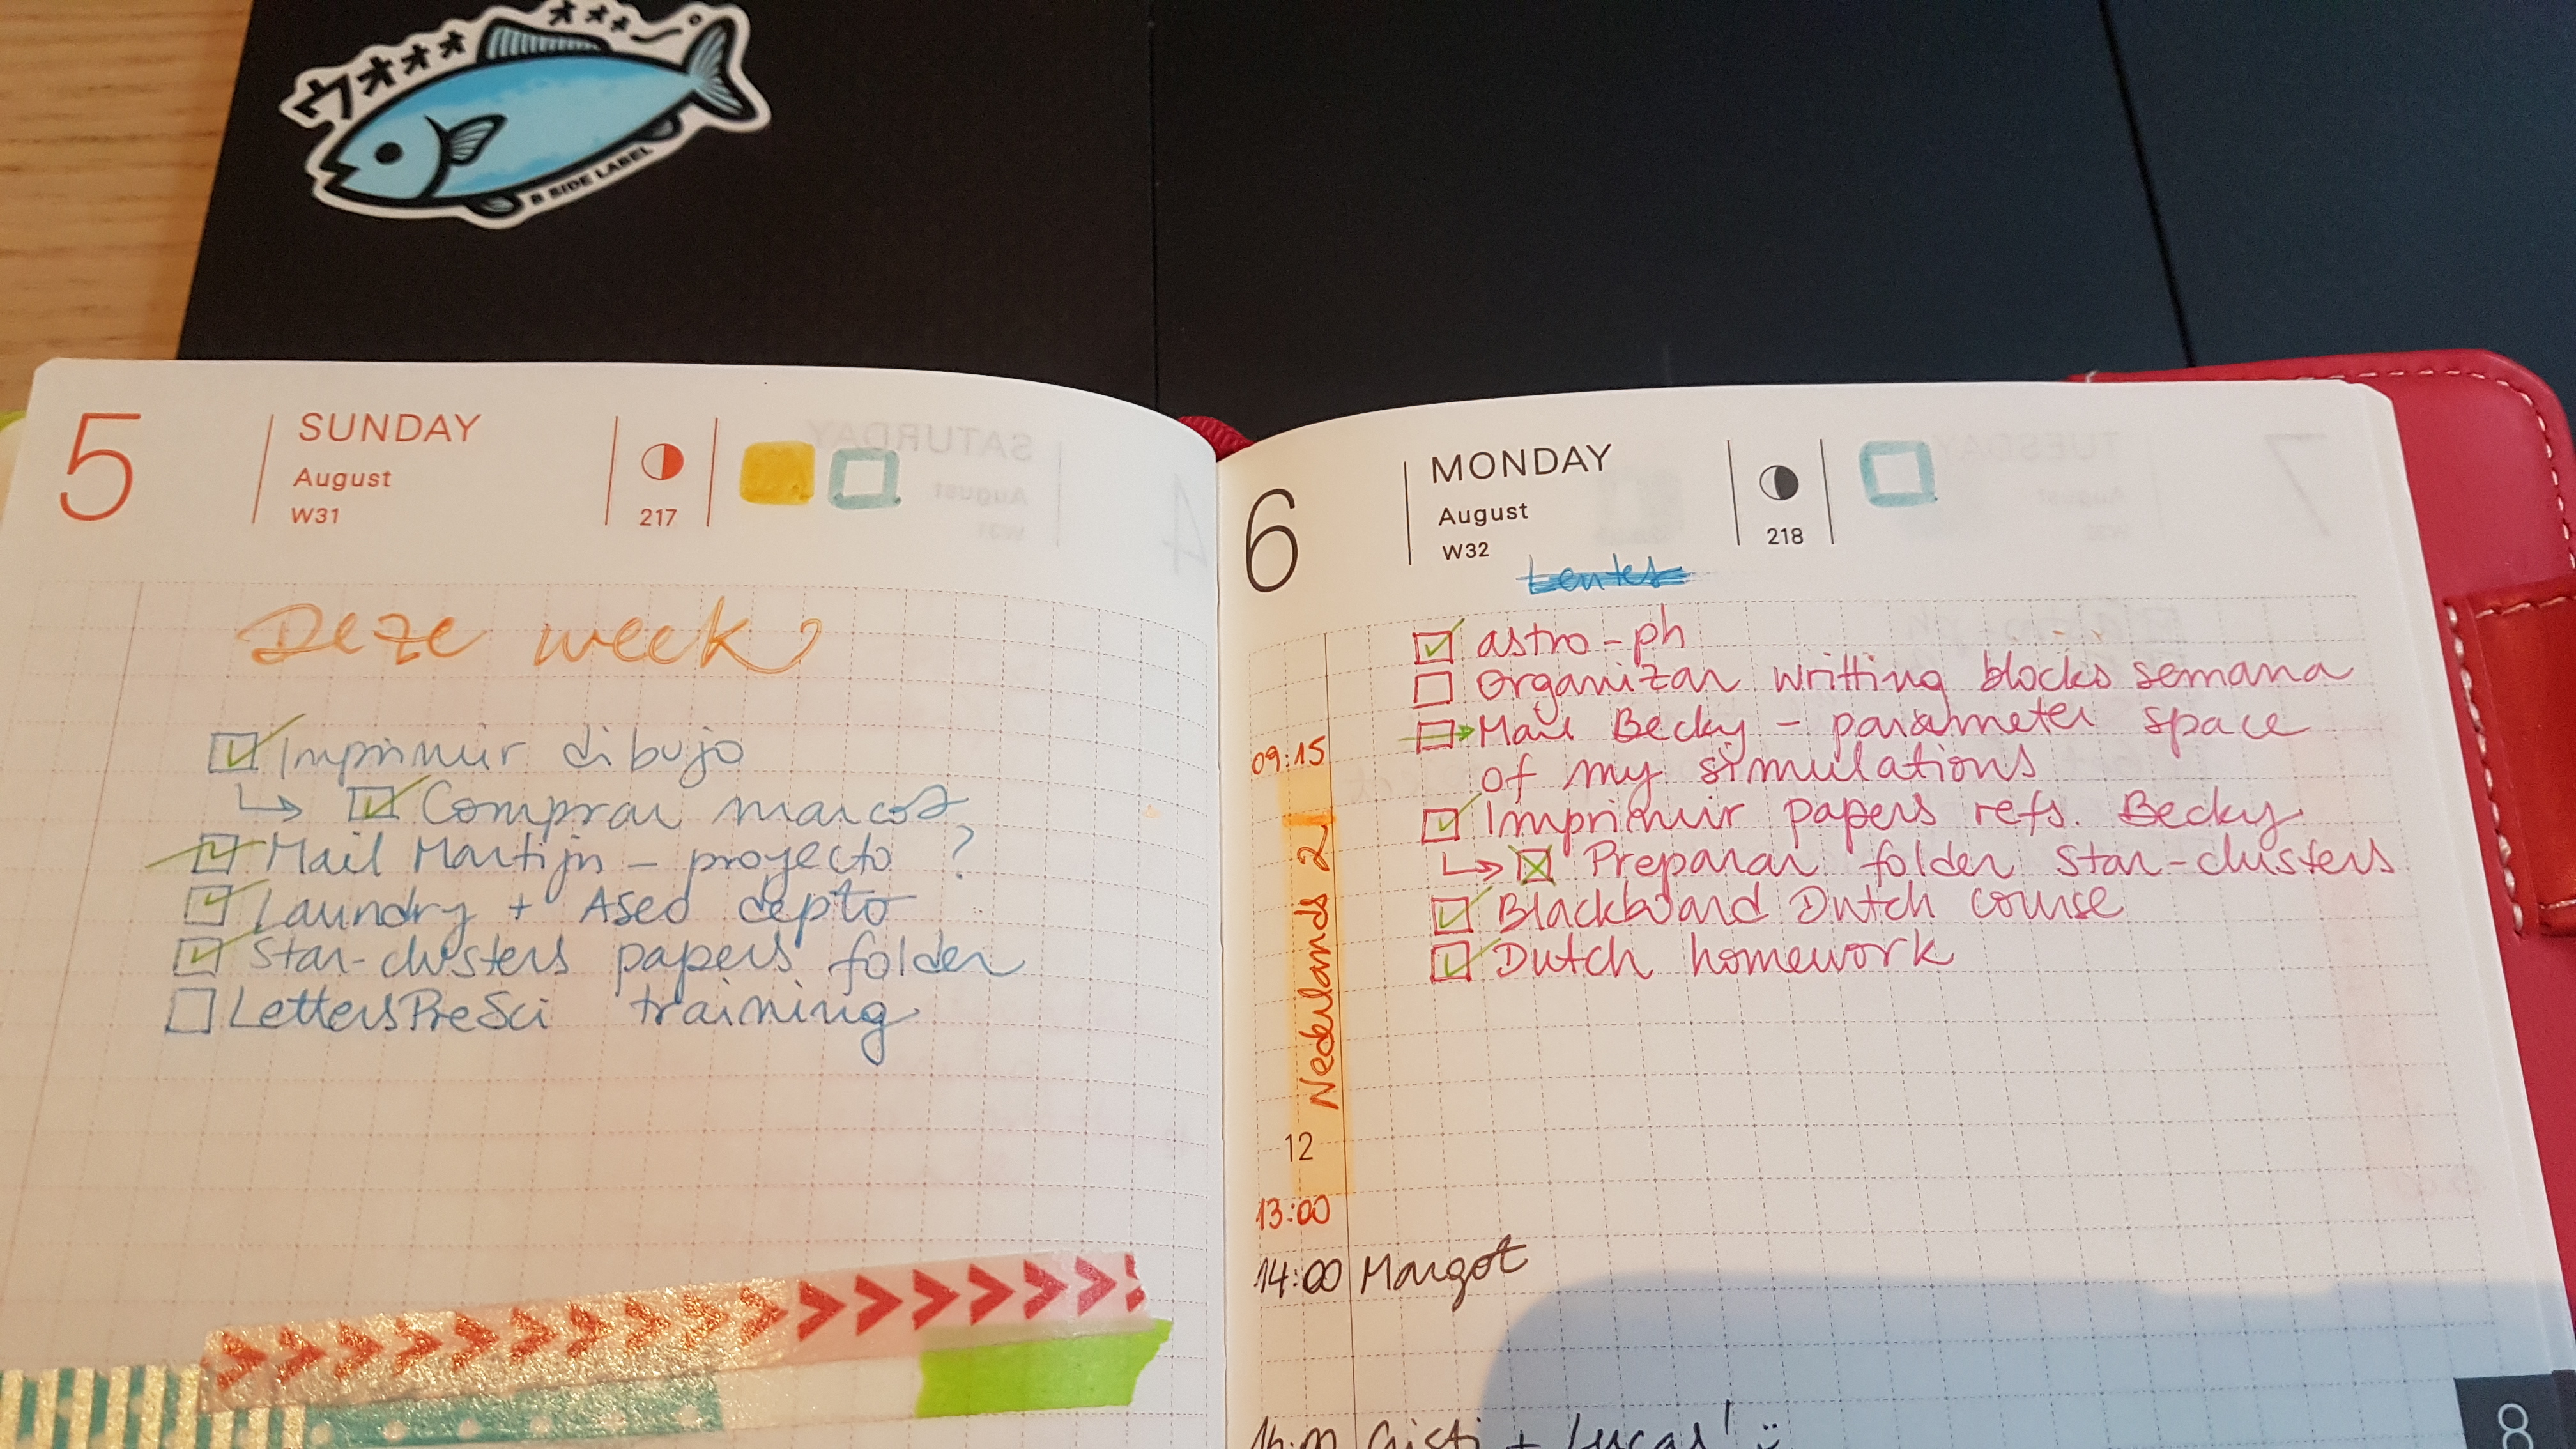 ウオォォォ
B SIDE LABEL
5
SUNDAY
August
W31
217
Deze week
Imprimir dibujo
↳ Comprar marcos
Mail Martijn - proyecto ?
Laundry + Aseo depto
Star-clusters papers folder
LettersPreSci training
6
MONDAY
August
W32
218
Lentes
astro-ph
Organizar writting blocks semana
Mail Becky - parameter space
of my simulations
Imprimir papers refs. Becky
↳ Preparar folder Star-clusters
Blackboard Dutch course
Dutch homework
09:15
Nederlands 2
12
13:00
14:00 Margot
+ Lucas! :)
8
SATURDAY
August
W31
4
TUESDAY
7